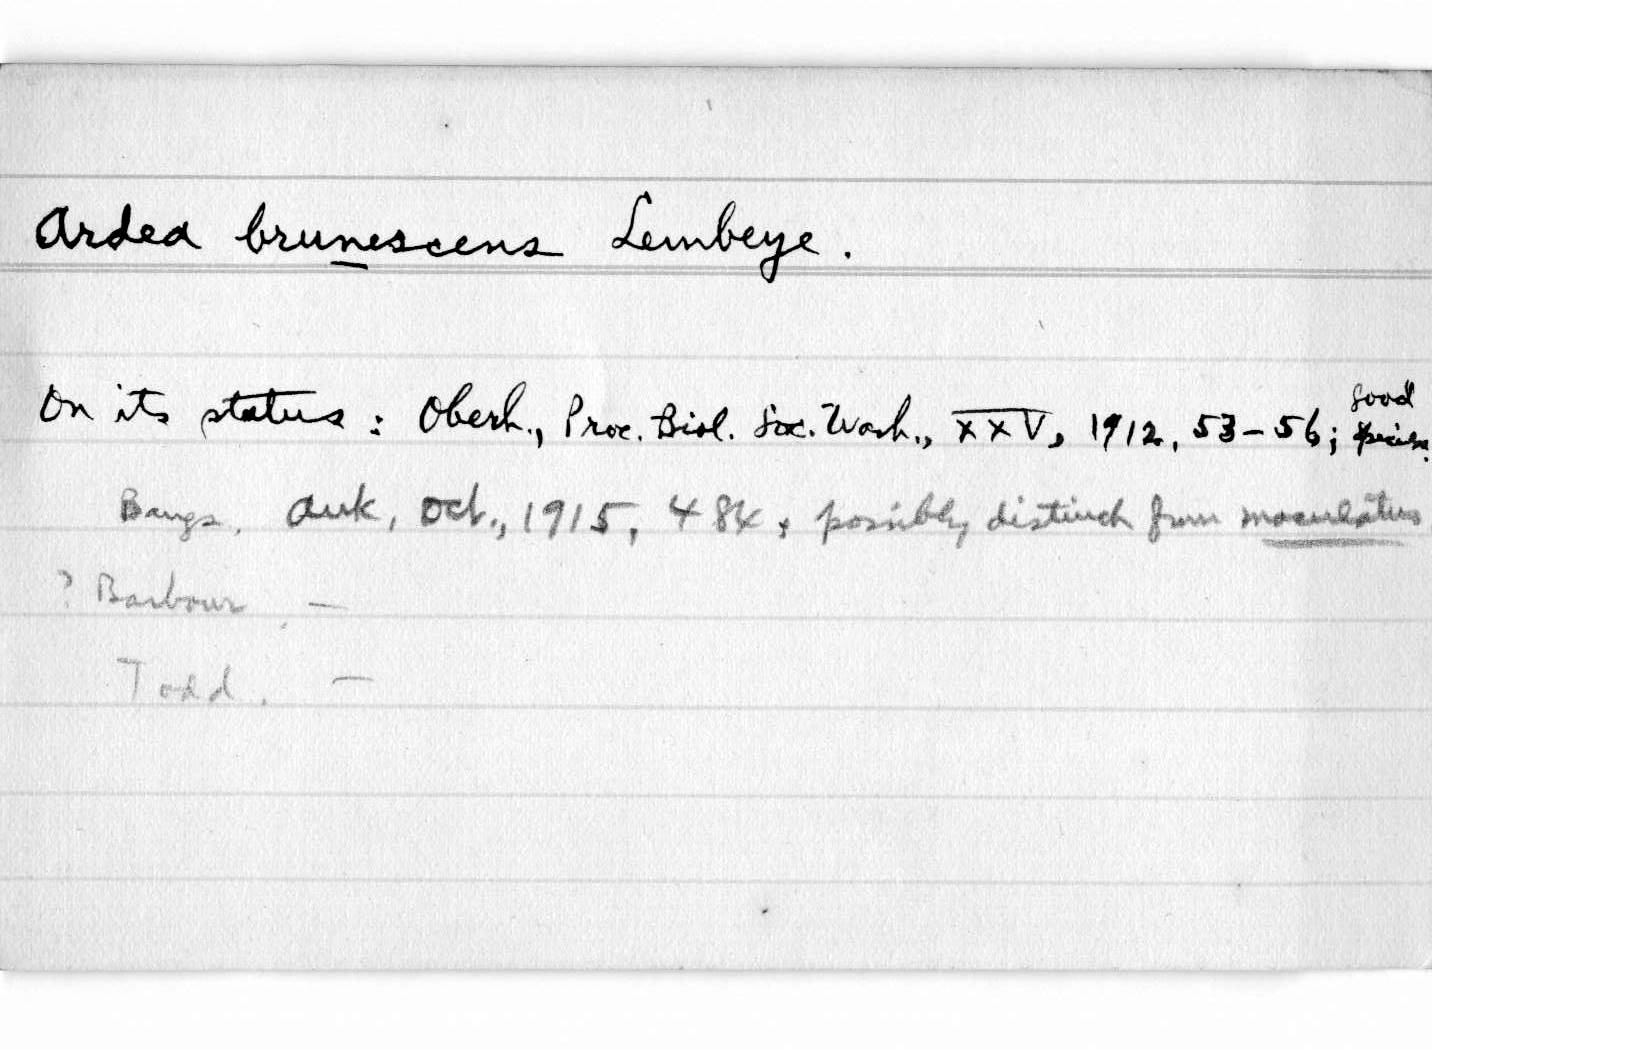 Ardea brunescens Lembeye.
On its status: Oberh., Proc. Biol. Soc. Wash., XXV, 1912, 53-56; good species.
Bangs, Auk, Oct., 1915, 484, possibly distinct from maculatus
? Barbour —
Todd. —